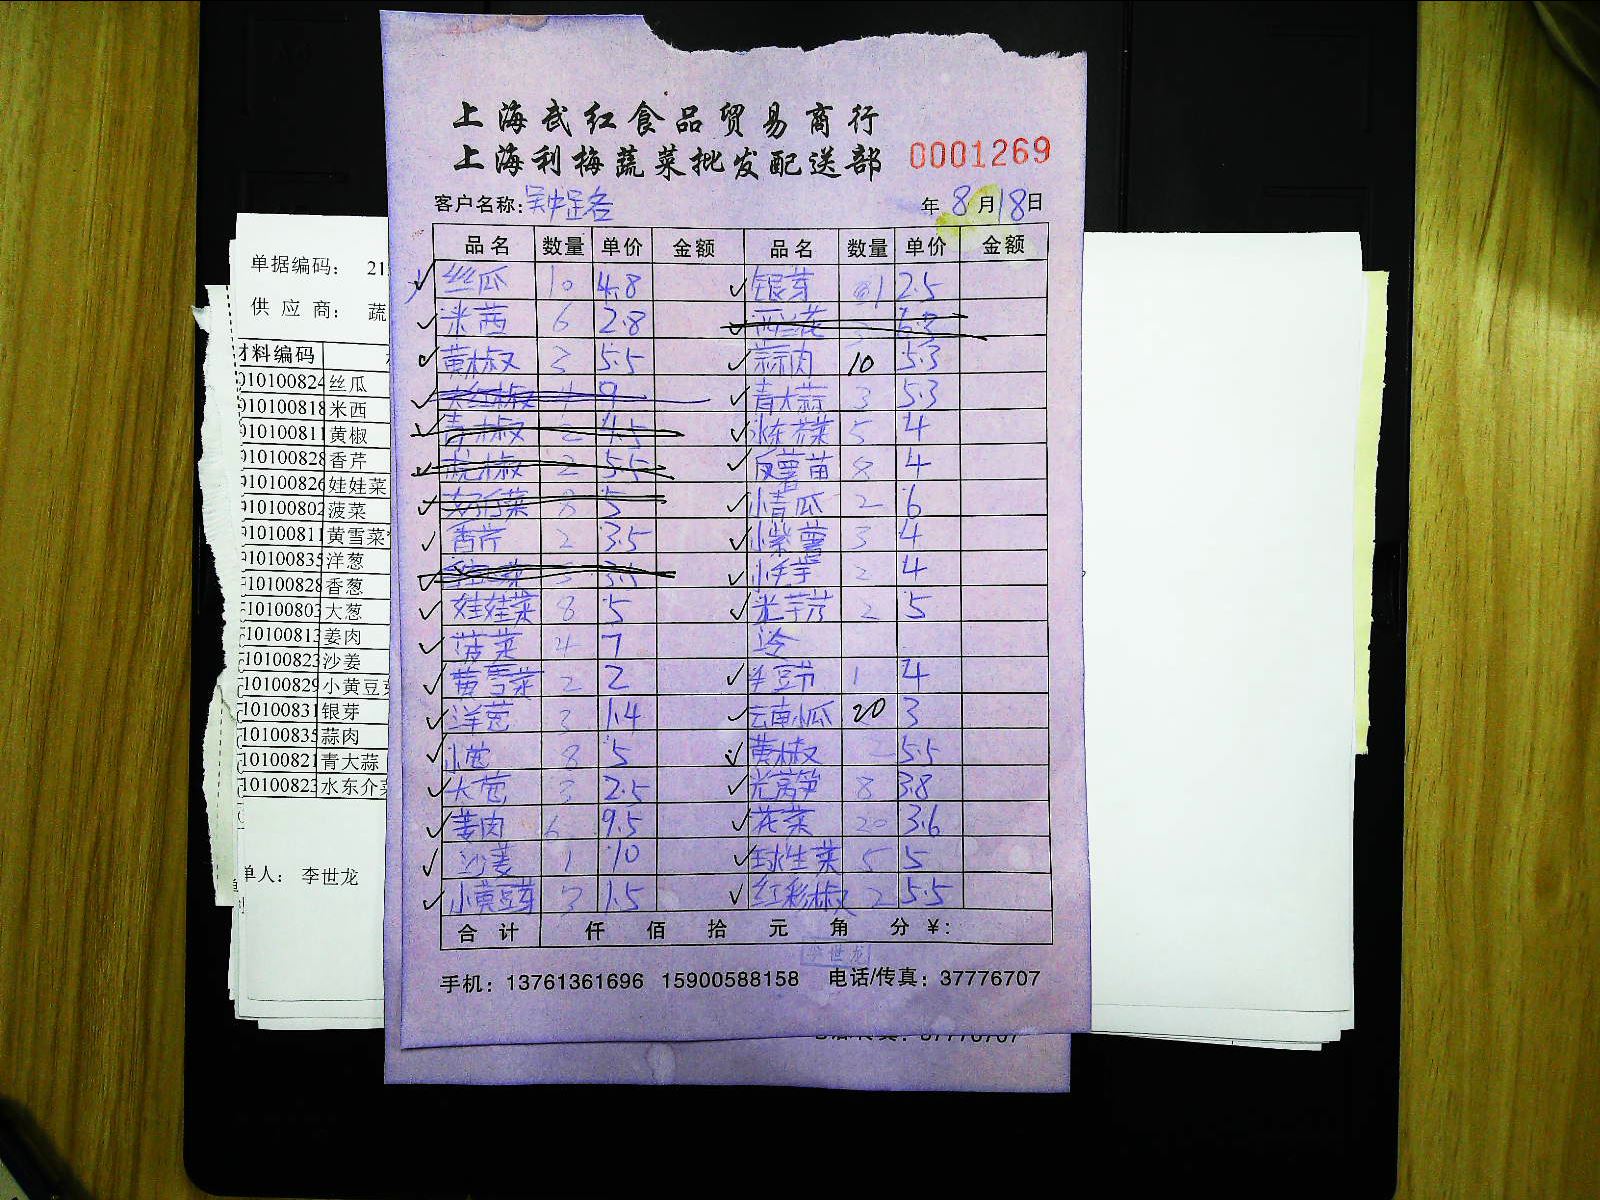 上海武红食品贸易商行
上海利梅蔬菜批发配送部
0001269
客户名称:
年 8 月 18 日
品名 数量 单价 金额 品名 数量 单价 金额
丝瓜 10 4.8 银芽 1 2.5
米茜 6 2.8 西兰花 6.3
黄椒 3 5.5 蒜肉 10 5.3
大红椒 4 9 青大蒜 3 5.3
青椒 2 4.5 水东芥菜 5 4
杭椒 2 5.5 苗 4
8 5 小青瓜 2 6
香芹 2 3.5 小紫薯 3 4
3 小芋 2 4
娃娃菜 8 5 2 5
菠菜 4 7
黄雪菜 2 2 1 4
洋葱 3 1.4 云南小瓜 20 3
小葱 8 5 黄椒 2 5.5
大葱 3 2.5 光莴笋 8 3.8
姜肉 6 9.5 花菜 20 3.6
沙姜 1 10 球生菜 5 5
小黄豆芽 3 1.5 红彩椒 2 5.5
合计 仟 佰 拾 元 角 分 ¥:
李世龙
手机: 13761361696 15900588158 电话/传真: 37776707
单据编码: 21
供应商: 蔬
材料编码
010100824 丝瓜
010100818 米西
010100811 黄椒
010100828 香芹
010100826 娃娃菜
010100802 菠菜
010100811 黄雪菜
010100835 洋葱
010100828 香葱
010100803 大葱
10100813 姜肉
10100823 沙姜
10100829 小黄豆芽
10100831 银芽
10100835 蒜肉
10100821 青大蒜
10100823 水东介菜
单人: 李世龙